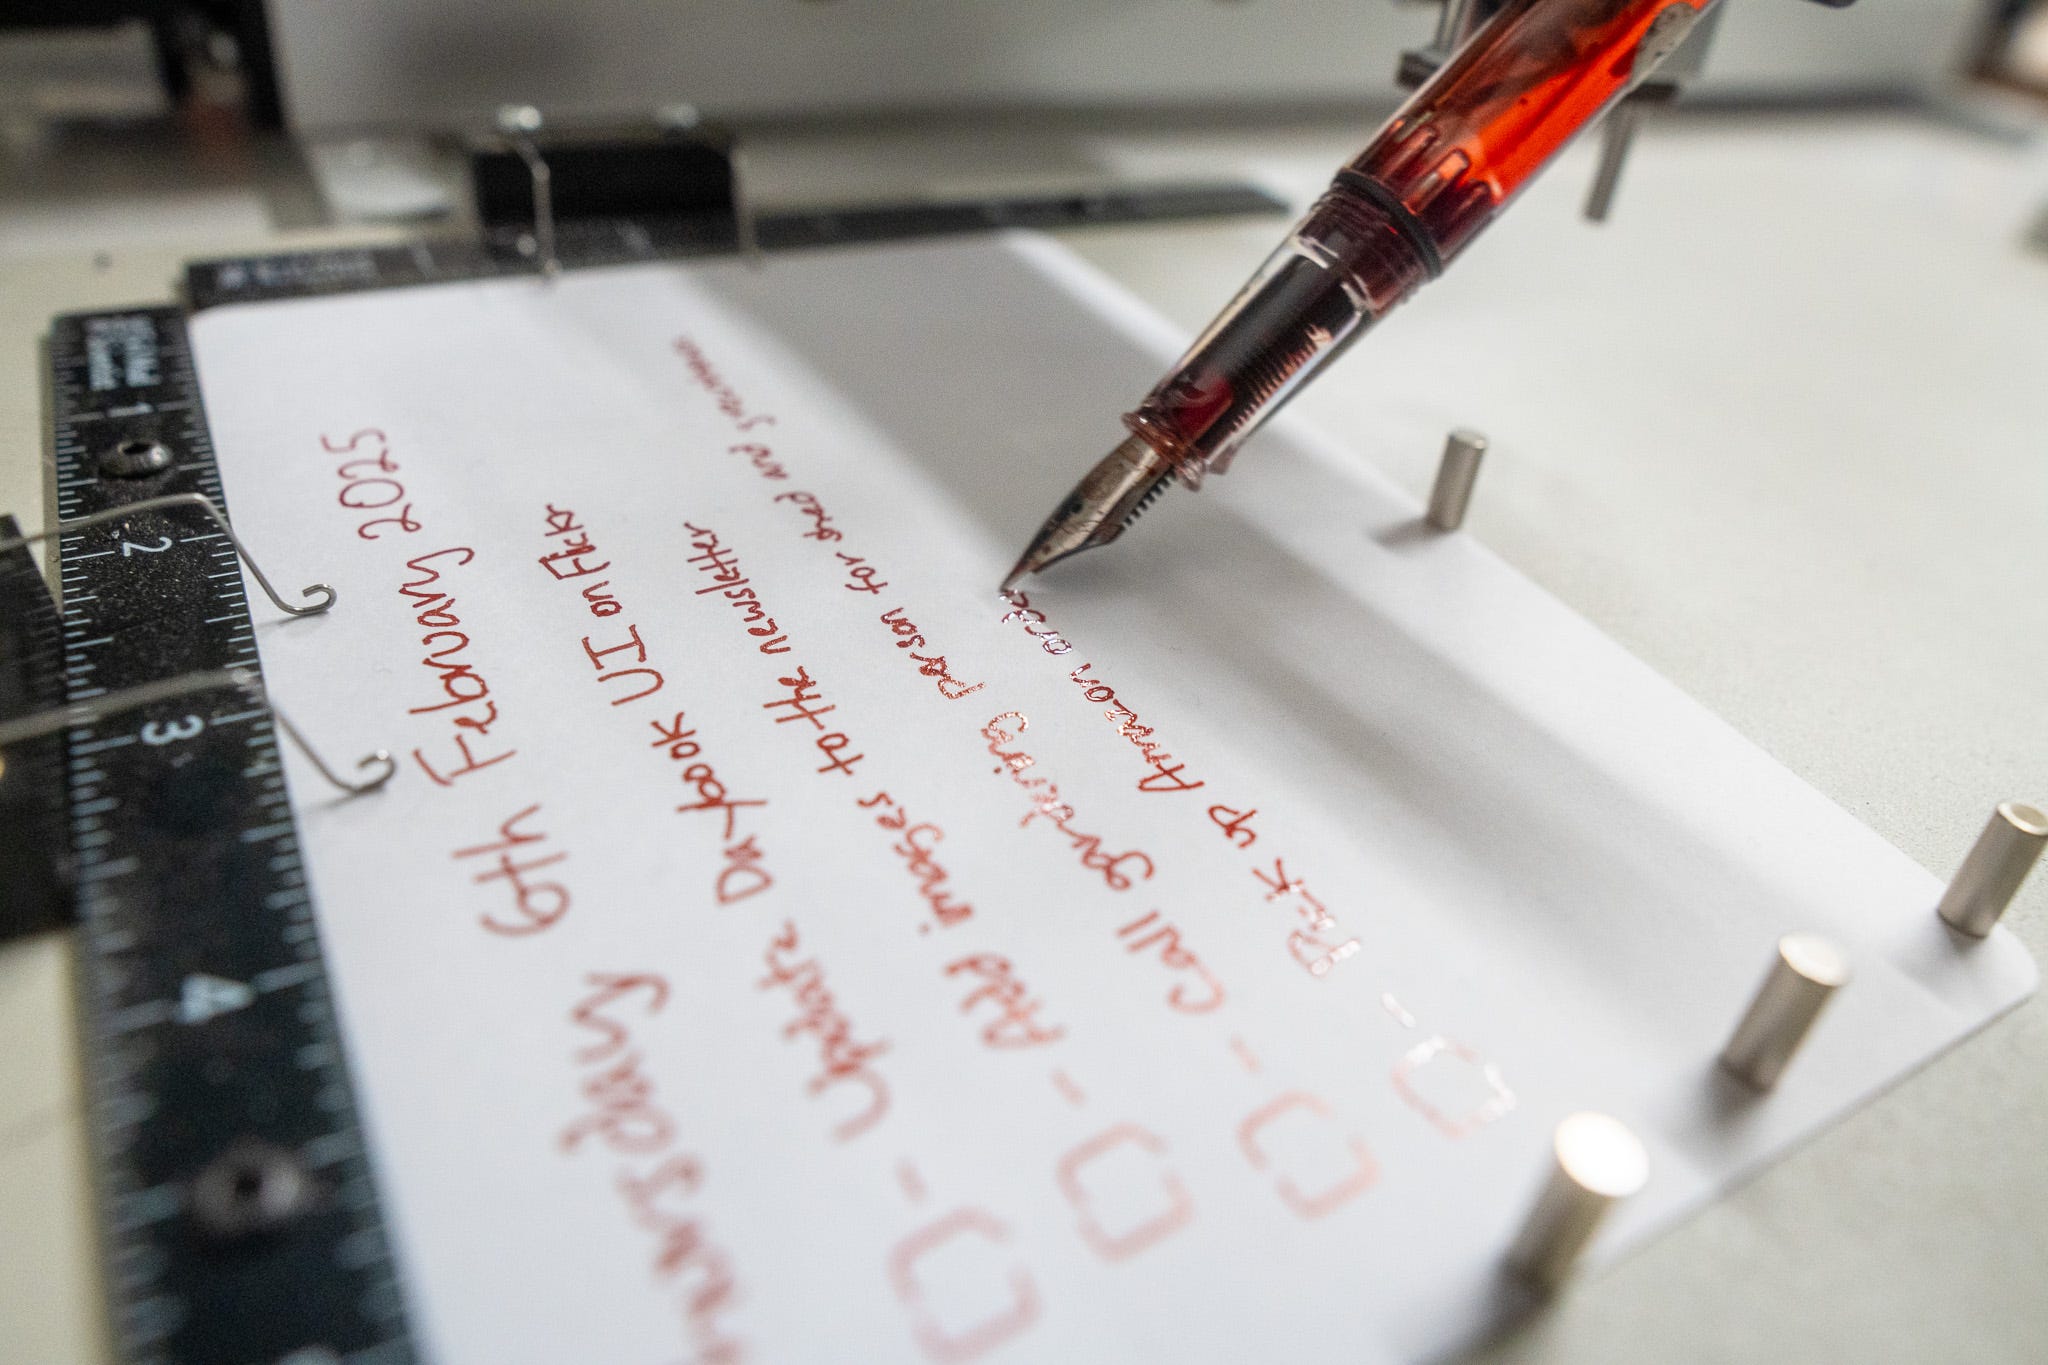 hursday 6th February 2025
- Update Daybook UI on
- Add images to the newsletter
- Call gardening person for shed and
- Pick up Amazon orde
1
2
3
4